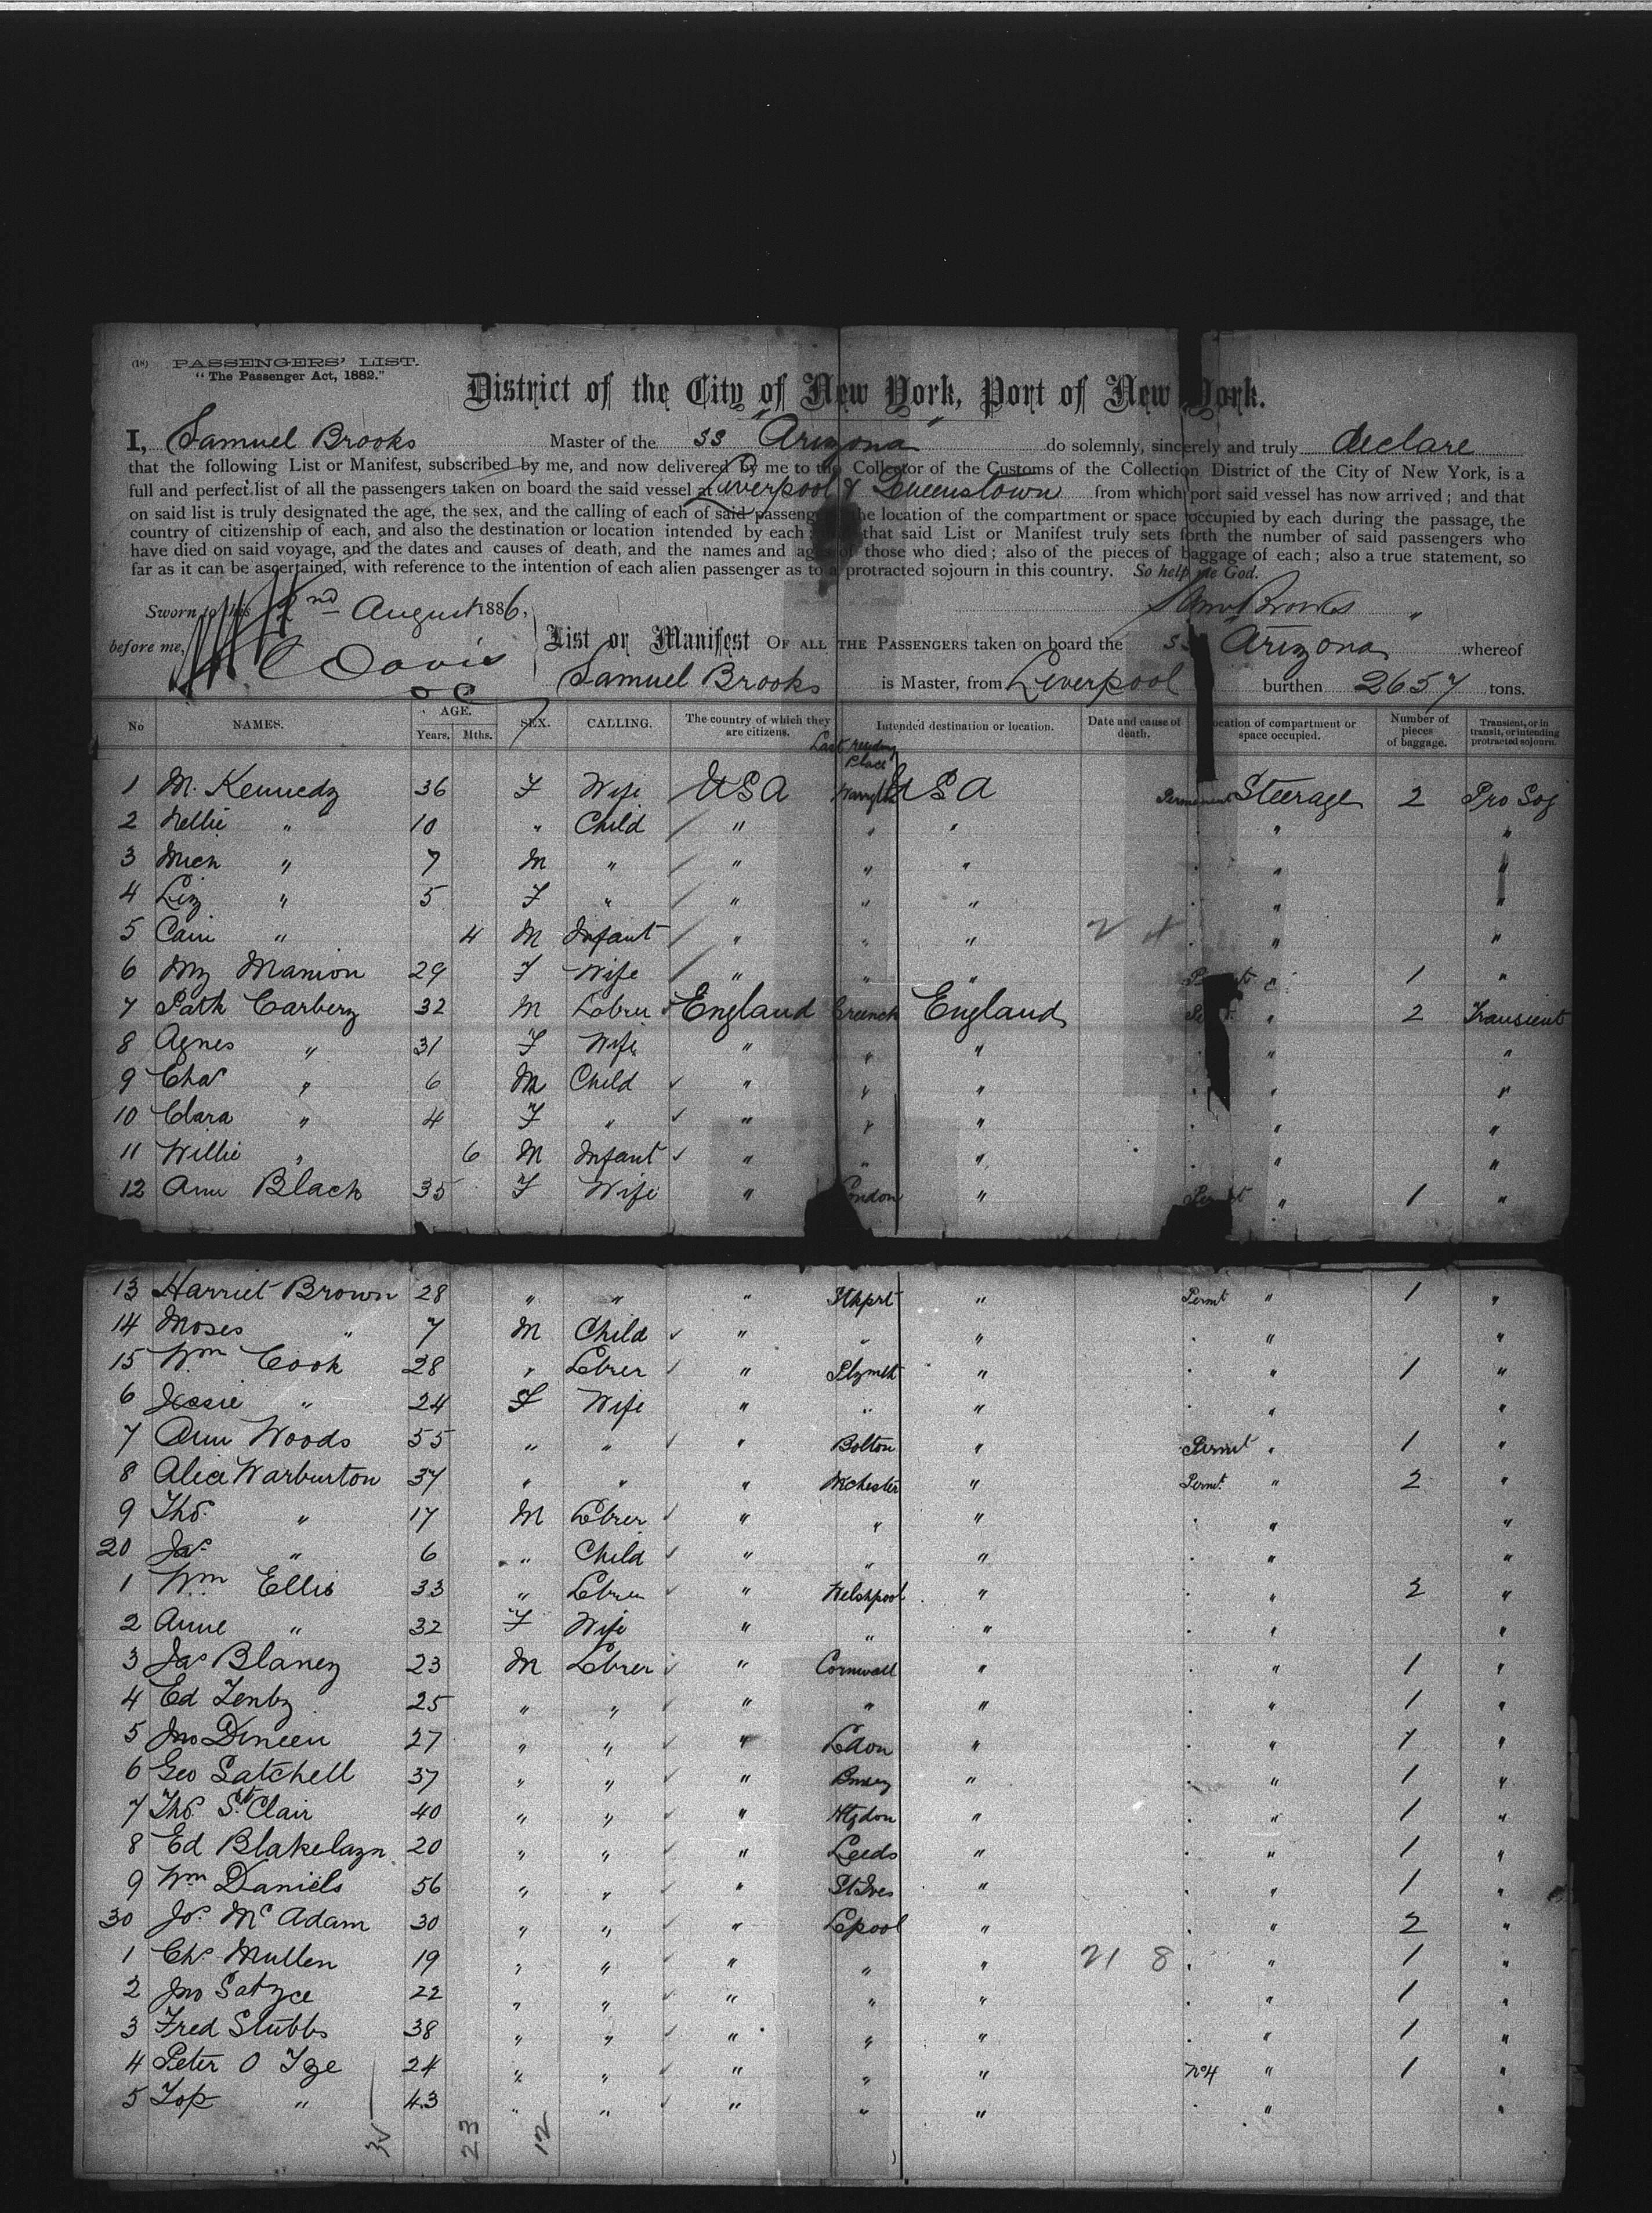 (18) PASSENGERS' LIST.
"The Passenger Act, 1882."
District of the City of New York, Port of New York.
I, Samuel Brooks Master of the SS "Arizona" do solemnly, sincerely and truly declare
that the following List or Manifest, subscribed by me, and now delivered by me to the Collector of the Customs of the Collection District of the City of New York, is a
full and perfect list of all the passengers taken on board the said vessel at Liverpool & Queenstown from which port said vessel has now arrived; and that
on said list is truly designated the age, the sex, and the calling of each of said passengers the location of the compartment or space occupied by each during the passage, the
country of citizenship of each, and also the destination or location intended by each; that said List or Manifest truly sets forth the number of said passengers who
have died on said voyage, and the dates and causes of death, and the names and ages of those who died; also of the pieces of baggage of each; also a true statement, so
far as it can be ascertained, with reference to the intention of each alien passenger as to a protracted sojourn in this country. So help me God.
Sworn to this 2nd August 1886. Saml Brooks
before me, C Davis List or Manifest OF ALL THE PASSENGERS taken on board the SS Arizona whereof
Samuel Brooks is Master, from Liverpool burthen 2657 tons.
No NAMES. AGE. Years. Mths. SEX. CALLING. The country of which they are citizens. Last residing Place Intended destination or location. Date and cause of death. Location of compartment or space occupied. Number of pieces of baggage. Transient, or in transit, or intending protracted sojourn.
1 M. Kennedy 36 F Wife USA USA Permanent Steerage 2 Pro Soj
2 Nellie " 10 " Child " " " " "
3 Mich " 7 M " " " " " "
4 Liz " 5 F " " " " " "
5 " 4 M Infant " " " " "
6 My Manion 29 F Wife " " " " 1 "
7 Patk Carbery 32 M Lebrer England England " 2 Transient
8 Agnes " 31 F Wife " " " " "
9 Chas " 6 M Child " " " " "
10 Clara " 4 F " " " " " "
11 Willie " 6 M Infant " " " " "
12 Ann Black 35 F Wife " London " Permt " 1 "
13 Harriet Brown 28 " " " Stkprt " Permt " 1 "
14 Moses " 7 M Child " " " " "
15 Wm Cook 28 " Lebrer " Plymth " " 1 "
6 Jessie " 24 F Wife " " " " "
7 Ann Woods 55 " " " Bolton " Permt " 1 "
8 Alice Warburton 37 " " " Mchester " Permt " 2 "
9 Thos. " 17 M Lebrer " " " " "
20 Jas " 6 " Child " " " " "
1 Wm Ellis 33 " Lebrer " Welshpool " " 2 "
2 Anne " 32 F Wife " " " " "
3 Jas Blaney 23 M Lebrer " Cornwall " " 1 "
4 Ed Tenby 25 " " " " " " 1 "
5 Jno Dineen 27 " " " Ldon " " 1 "
6 Geo Satchell 37 " " " " " 1 "
7 Thos. St Clair 40 " " " Htgdon " " 1 "
8 Ed 20 " " " Leeds " " 1 "
9 Wm Daniels 56 " " " St Ives " " 1 "
30 Jo. Mc Adam 30 " " " Lpool " " 2 "
1 Chs Mullen 19 " " " " " 21 8 " 1 "
2 Jno 22 " " " " " " 1 "
3 Fred Stubbs 38 " " " " " " 1 "
4 Peter O 24 " " " " " No 4 " 1 "
5 " 43 " " " " " " "
23 12